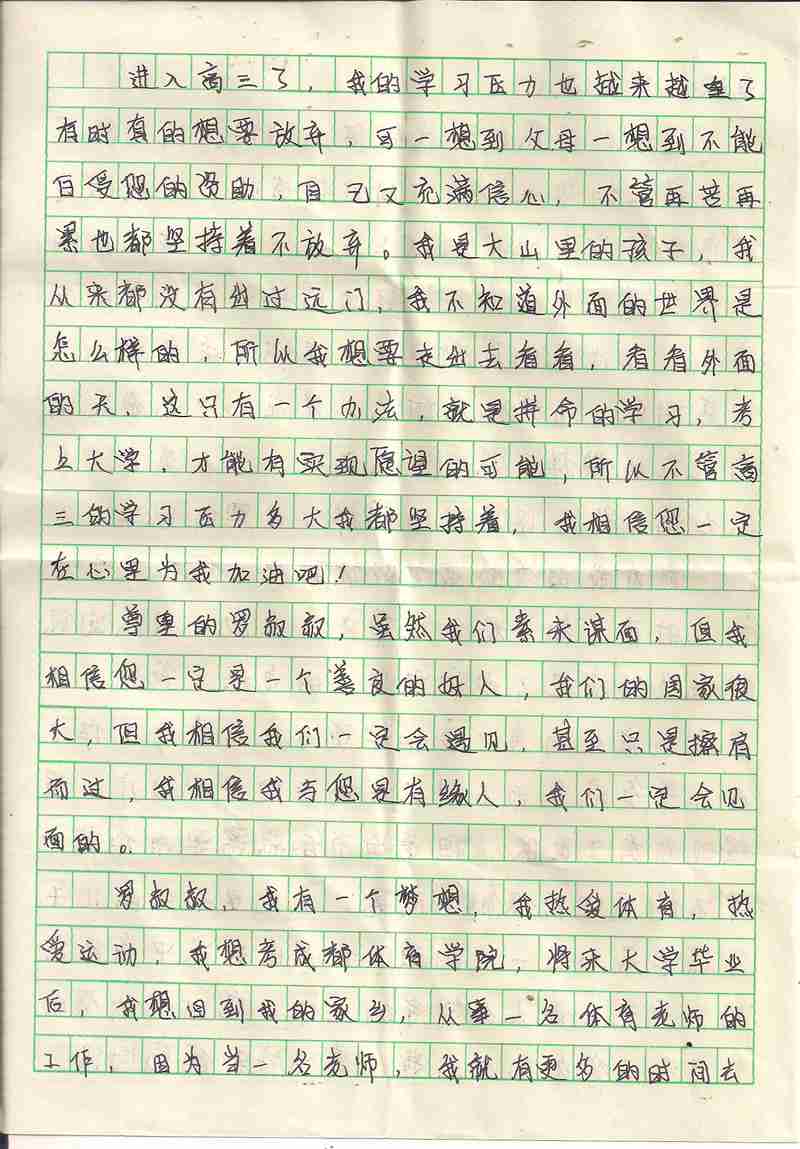 进入高三了，我的学习压力也越来越重了
有时真的想要放弃，可一想到父母一想到不能
白受您的资助，自己又充满信心，不管再苦再
累也都坚持着不放弃。我是大山里的孩子，我
从来都没有出过远门，我不知道外面的世界是
怎么样的，所以我想要走出去看看，看看外面
的天，这只有一个办法，就是拼命的学习，考
上大学，才能有实现愿望的可能，所以不管高
三的学习压力多大我都坚持着，我相信您一定
在心里为我加油吧！
尊重的罗叔叔，虽然我们素未谋面，但我
相信您一定是一个善良的好人，我们的国家很
大，但我相信我们一定会遇见，甚至只是擦肩
而过，我相信我与您是有缘人，我们一定会见
面的。
罗叔叔，我有一个梦想，我热爱体育，热
爱运动，我想考成都体育学院，将来大学毕业
后，我想回到我的家乡，从事一名体育老师的
工作，因为当一名老师，我就有更多的时间去